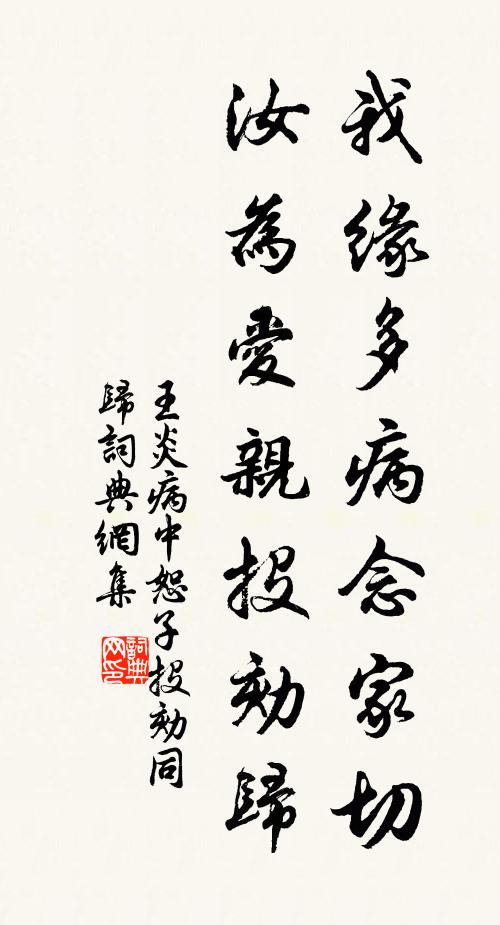 我緣多病念家切
汝為愛親投劾歸
王炎病中恕子投劾同
歸詞典網集
詞典網印